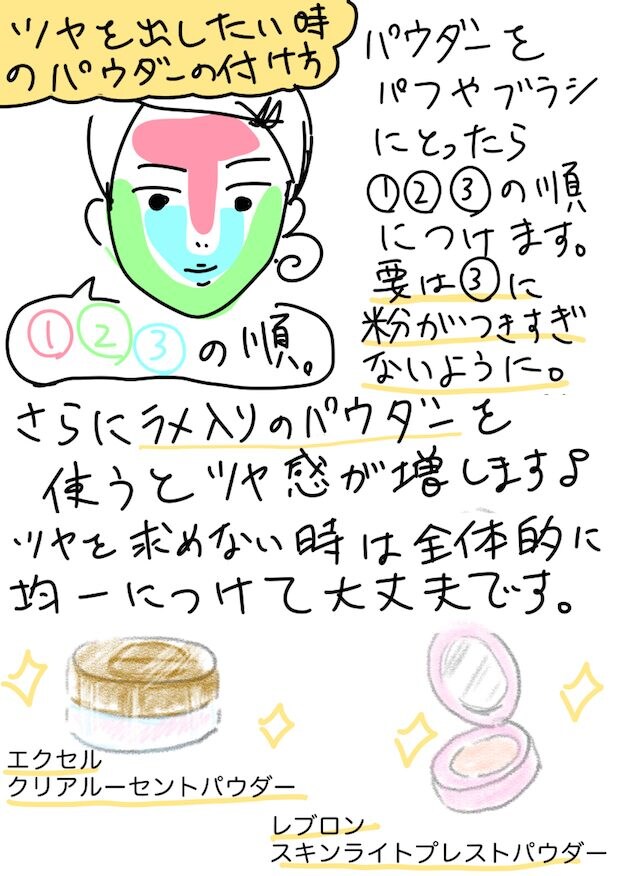 ツヤを出したい時
のパウダーの付け方
パウダーを
パフやブラシ
にとったら
①②③の順
につけます。
要は③に
粉がつきすぎ
ないように。
①②③の順。
さらにラメ入りのパウダーを
使うとツヤ感が増します♪
ツヤを求めない時は全体的に
均一につけて大丈夫です。
エクセル
クリアルーセントパウダー
レブロン
スキンライトプレストパウダー